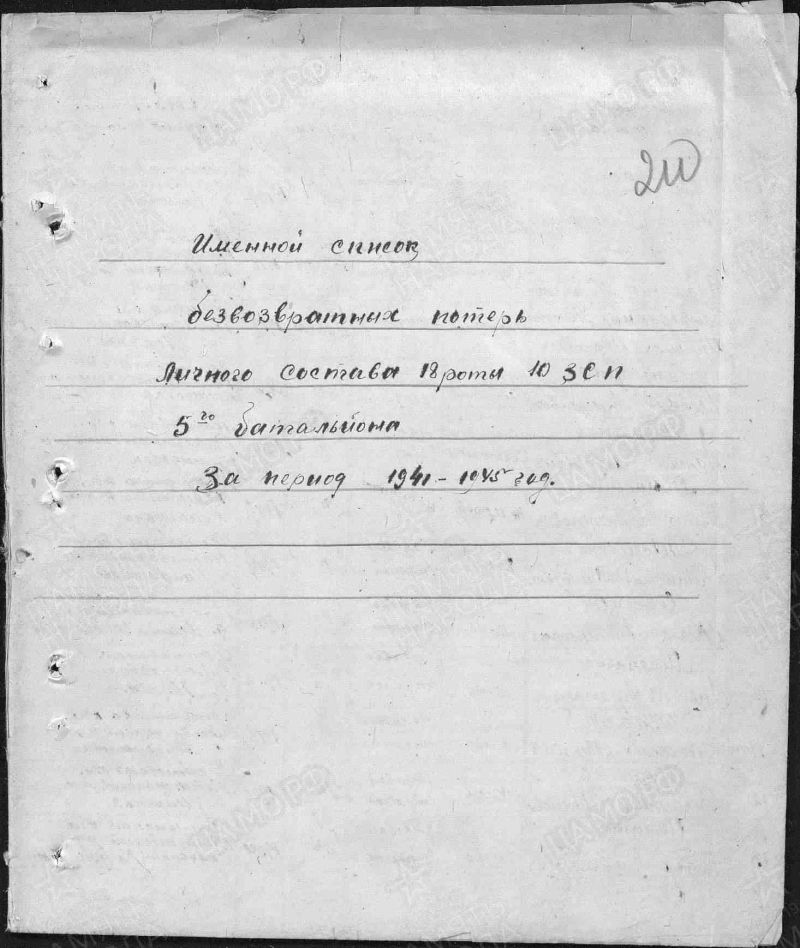 210
Именной список
безвозвратных потерь
Личного состава 18 роты 10 ЗСП
5го батальйона
За период 1941-1945 год.